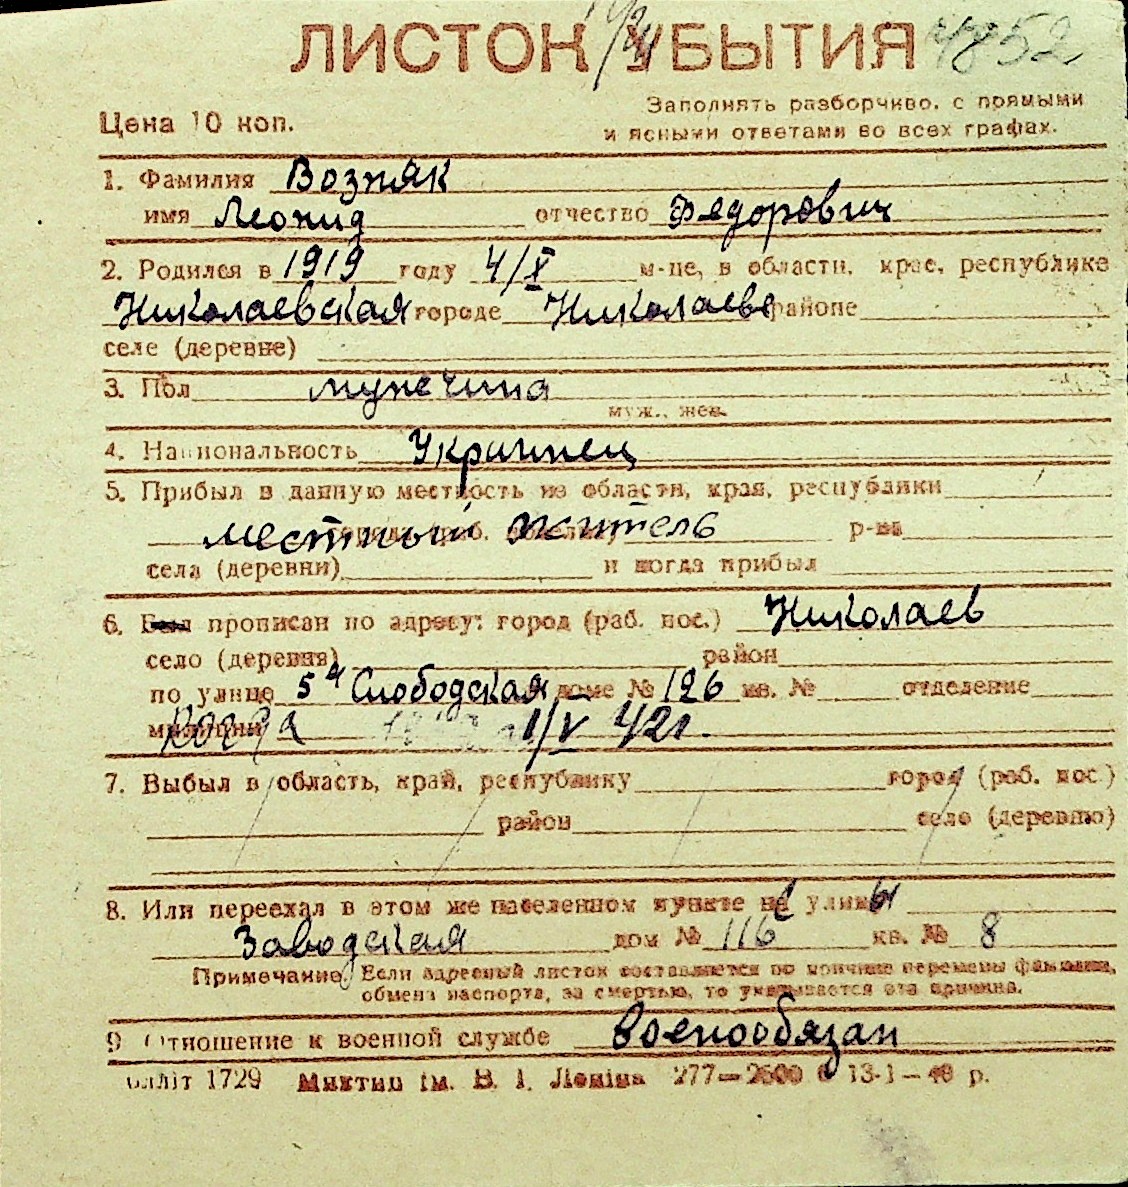 ЛИСТОК УБЫТИЯ 4852
Цена 10 коп.
Заполнять разборчиво, с прямыми
и ясными ответами во всех графах.
1. Фамилия Возняк
имя Леонид отчество Федорович
2. Родился в 1919 году 4/X м-це, в области, крае, республике
Николаевская городе Николаеве районе
селе (деревне)
3. Пол мужчина
муж., жен.
4. Национальность Украинец
5. Прибыл в данную местность из области, края, республики
местный житель р-на
села (деревни) и когда прибыл
6. прописан по адресу: город (раб. пос.) Николаев
село (деревня) район
по улице 5я Слободская доме № 126 кв. № отделение
милиции когда 1/V 42г.
7. Выбыл в область, край, республику город (раб. пос.)
район село (деревню)
8. Или переехал в этом же населенном пункте улицы
Заводская дом № 116 кв. № 8
Примечание. Если адресный листок составляется по причине перемены фамилии,
обмена паспорта, за смертью, то указывается эта причина.
9 Отношение к военной службе Военнообязан
1729 Миктип ім. В. І. Леніна 277—2500 13-1—40 р.